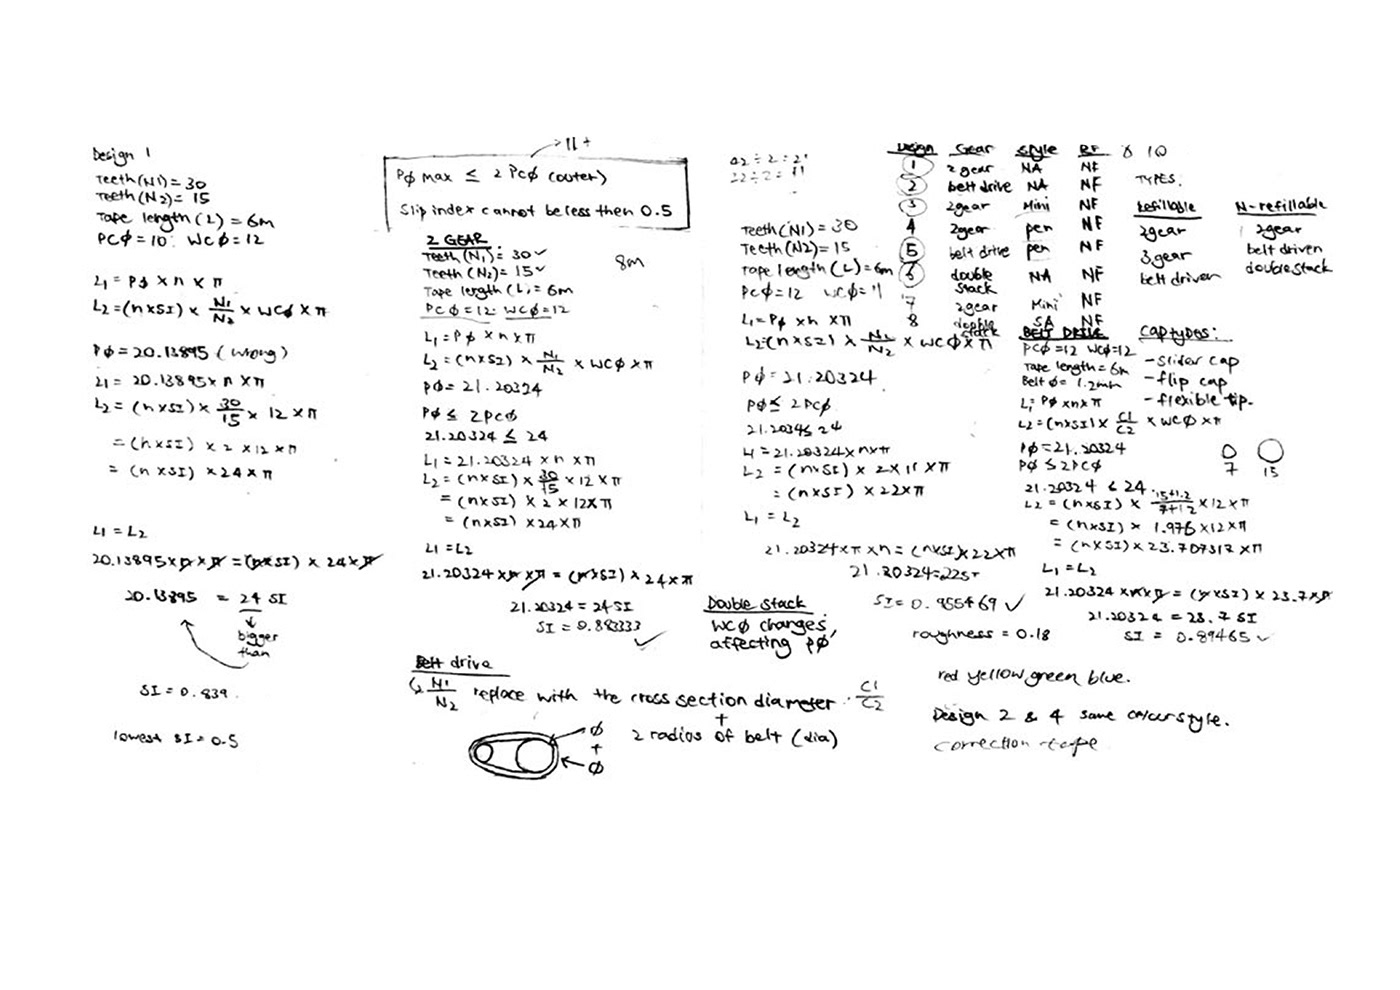 Design 1
Teeth(N1) = 30
Teeth(N2) = 15
Tape length(L) = 6m
PCφ = 10. WCφ = 12
L1 = Pφ x n x π
L2 = (n x SI) x N1/N2 x WCφ x π
Pφ = 20.13895 (wrong)
L1 = 20.13895 x n x π
L2 = (n x SI) x 30/15 x 12 x π
= (n x SI) x 2 x 12 x π
= (n x SI) x 24 x π
L1 = L2
20.13895 x n x π = (n x SI) x 24 x π
20.13895 = 24 SI
bigger
than
SI = 0.839
lowest SI = 0.5
Pφ max ≤ 2 PCφ (outer)
Slip index cannot be less then 0.5
2 GEAR
Teeth(N1) = 30 ✓
Teeth(N2) = 15 ✓
8m
Tape length(L) = 6m
PCφ = 12. WCφ = 12
L1 = Pφ x n x π
L2 = (n x SI) x N1/N2 x WCφ x π
Pφ = 21.20324
Pφ ≤ 2PCφ
21.20324 ≤ 24
L1 = 21.20324 x n x π
L2 = (n x SI) x 30/15 x 12 x π
= (n x SI) x 2 x 12 x π
= (n x SI) x 24 x π
L1 = L2
21.20324 x n x π = (n x SI) x 24 x π
21.20324 = 24SI
SI = 0.883333 ✓
Belt drive
N1/N2 replace with the cross section diameter C1/C2
+
2 radios of belt (dia)
φ
+
φ
42 ÷ 2 = 21
22 ÷ 2 = 11
Teeth(N1) = 30
Teeth(N2) = 15
Tape length(L) = 6m
PCφ = 12 WCφ = 11
L1 = Pφ x n x π
L2 = (n x SI) x N1/N2 x WCφ x π
Pφ = 21.20324
Pφ ≤ 2PCφ
21.2034 ≤ 24
L1 = 21.20324 x n x π
L2 = (n x SI) x 2 x 11 x π
= (n x SI) x 22 x π
L1 = L2
21.20324 x π x n = (n x SI) x 22 x π
21.20324 = 22SI
SI = 0.955469 ✓
roughness = 0.18
Double stack
WCφ changes
affecting Pφ
Design Gear Style RF
1 2gear NA NF
2 belt drive NA NF
3 2gear Mini NF
4 2gear pen NF
5 belt drive pen NF
6 double stack NA NF
7 2gear Mini NF
8 double stack SA NF
x 10
TYPES:
Refillable
2gear
3gear
belt driven
N-refillable
2gear
belt driven
doublestack
BELT DRIVE
PCφ = 12 WCφ = 12
Tape length = 6m
Belt φ = 1.2mm
L1 = Pφ x n x π
L2 = (n x SI) x C1/C2 x WCφ x π
Pφ = 21.20324
Pφ ≤ 2PCφ
21.20324 ≤ 24
L2 = (n x SI) x 15+1.2/7+1.2 x 12 x π
= (n x SI) x 1.976 x 12 x π
= (n x SI) x 23.707317 x π
L1 = L2
21.20324 x n x π = (n x SI) x 23.7 x π
21.20324 = 23.7 SI
SI = 0.89465 ✓
Cap types:
-slider cap
-flip cap
-flexible tip.
7 15
red yellow green blue.
Design 2 & 4 same colour style.
correction tape